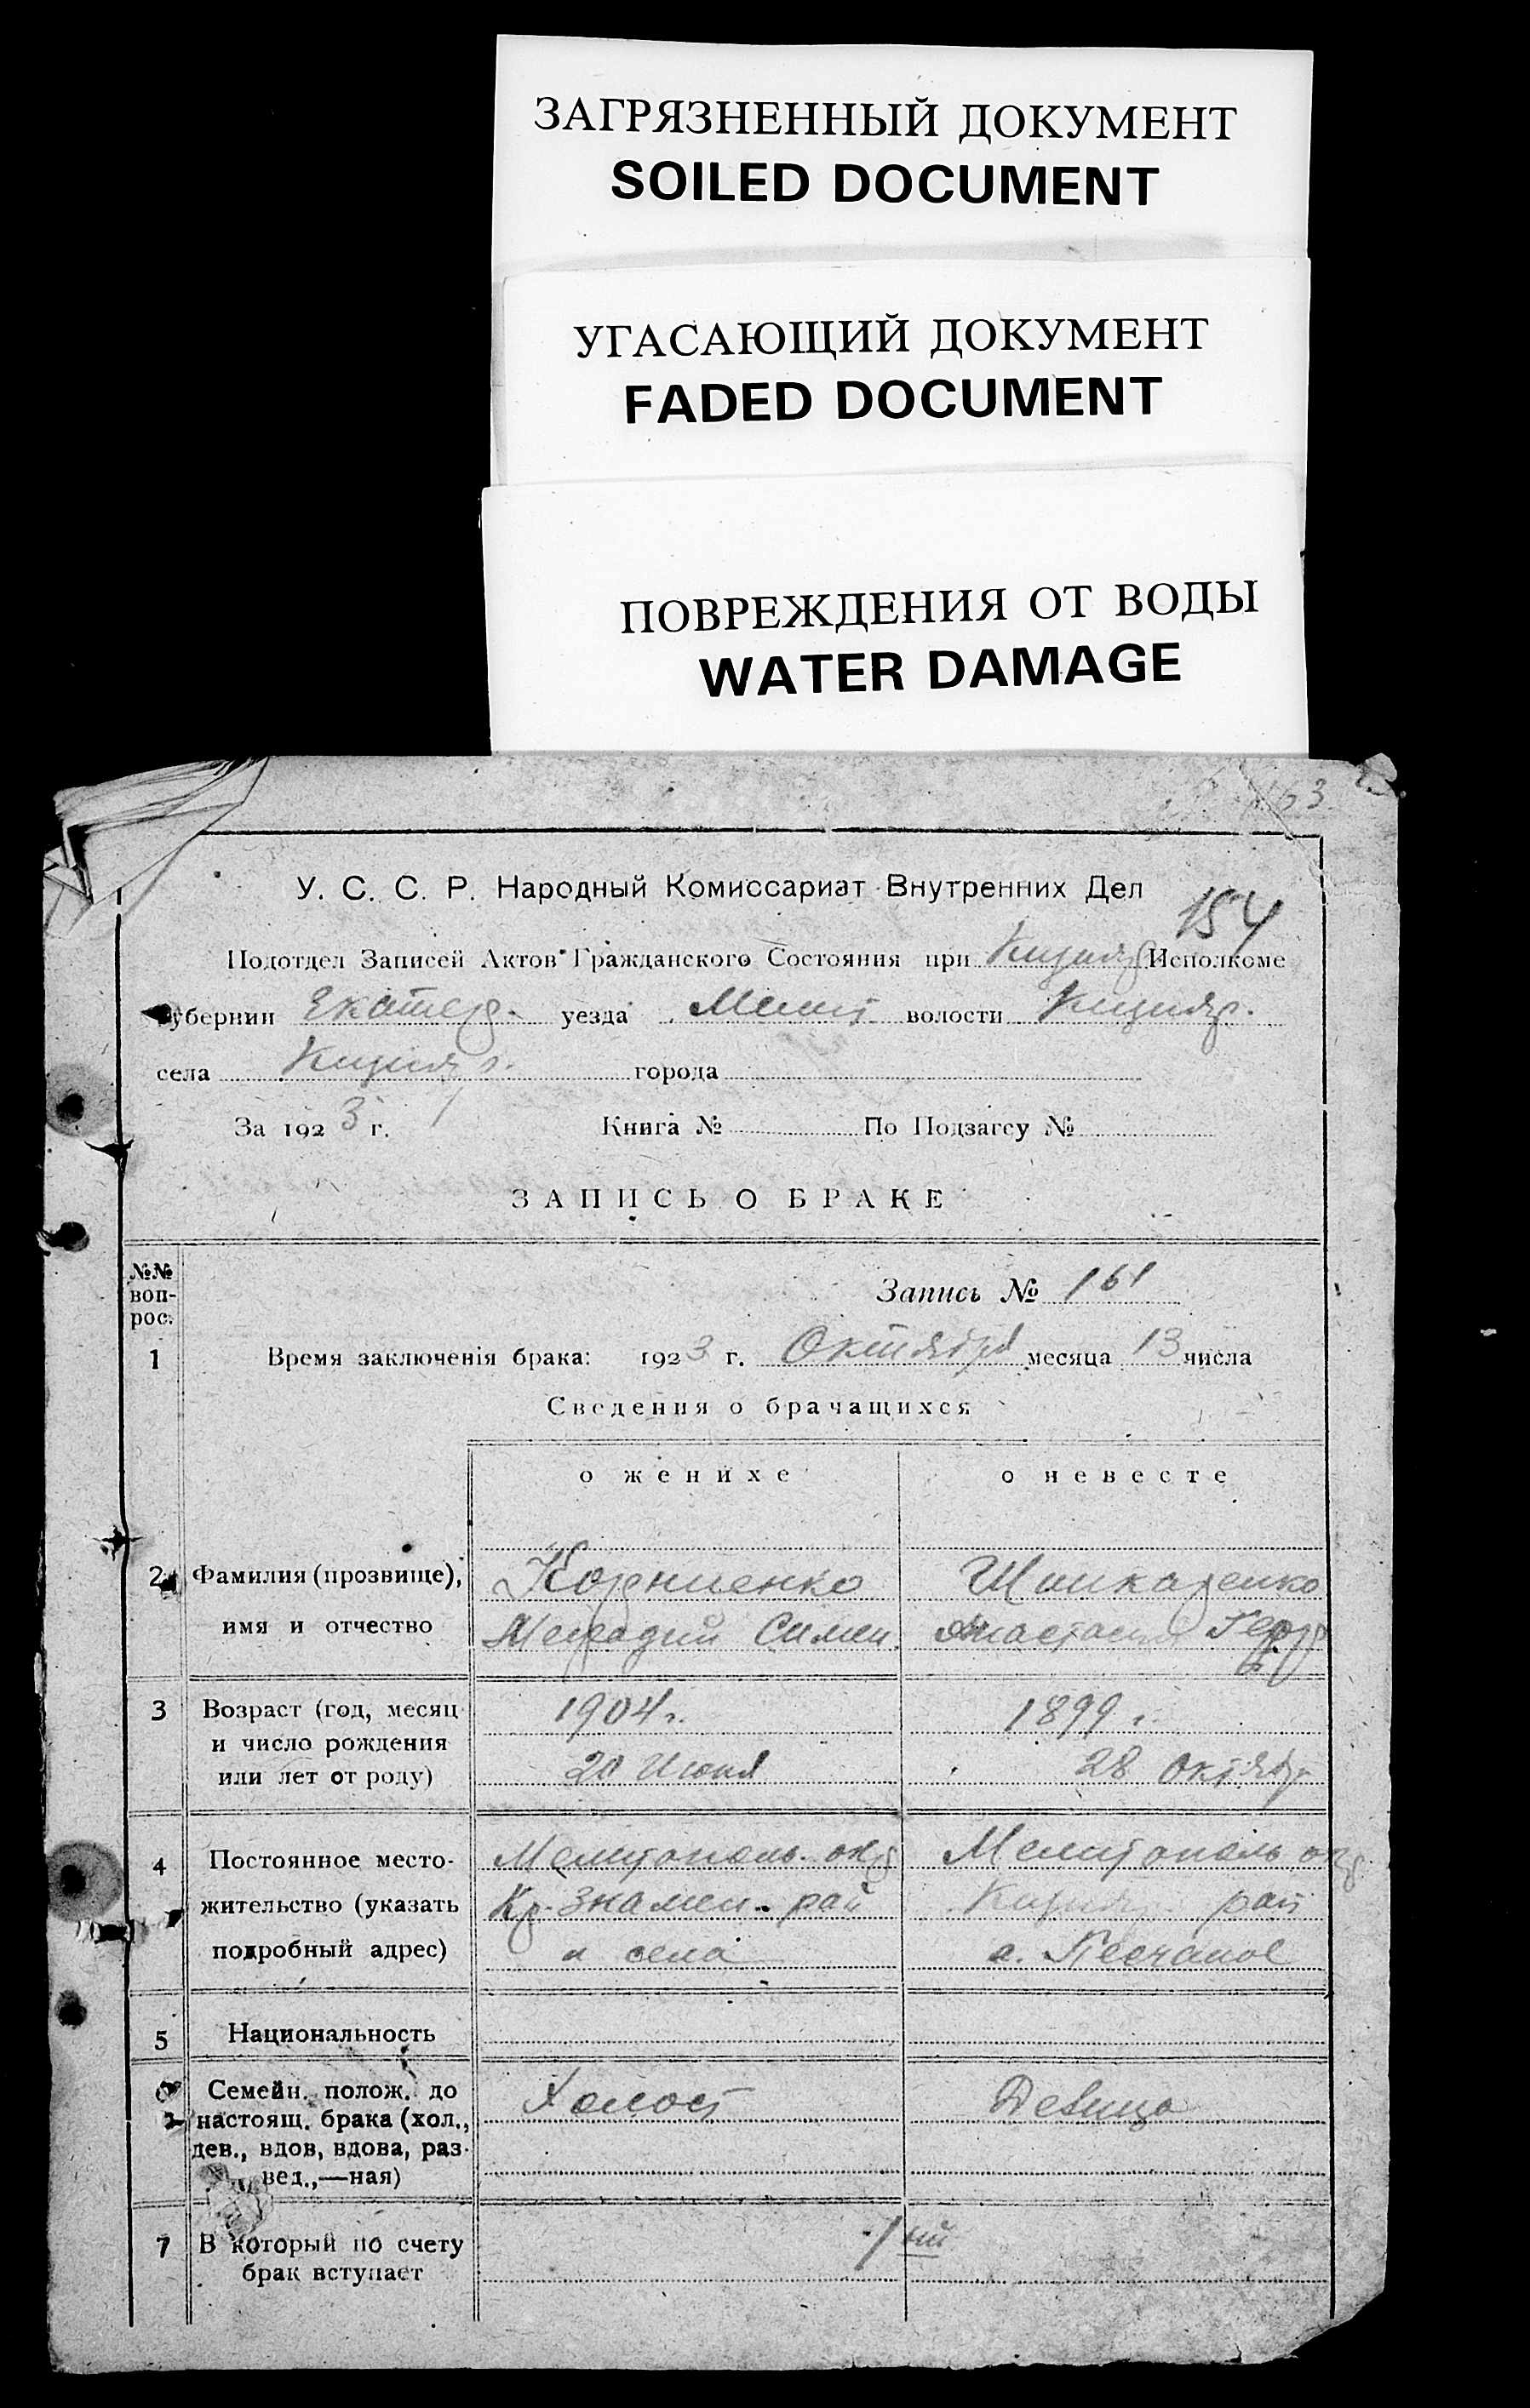 ЗАГРЯЗНЕННЫЙ ДОКУМЕНТ
SOILED DOCUMENT
УГАСАЮЩИЙ ДОКУМЕНТ
FADED DOCUMENT
ПОВРЕЖДЕНИЯ ОТ ВОДЫ
WATER DAMAGE
У. С. С. Р. Народный Комиссариат Внутренних Дел
154
Подотдел Записей Актов Гражданского Состояния при Исполкоме
губернии Екатер. уезда Мелит волости
села города
За 1923 г. Книга № По Подзагсу №
ЗАПИСЬ О БРАКЕ
№№ вопрос.
Запись № 161
1 Время заключенія брака: 1923 г. Октября месяца 13 числа
Сведения о брачащихся
о женихе о невесте
2 Фамилия (прозвище), Корниенко Шинкаренко
имя и отчество Симеон. Анастасия Георг
3 Возраст (год, месяц 1904 г. 1899 г.
и число рождения
или лет от роду) 20 Июня 28 Октябр.
4 Постоянное место- Мелитополь. окр Мелитополь окр
жительство (указать Кр. Знамен. рай рай
подробный адрес) и села с. Песчаное
5 Национальность
6 Семейн. полож. до Холост Девица
настоящ. брака (хол.,
дев., вдов, вдова, раз-
вед.,—ная)
7 В который по счету 1 ый
брак вступает